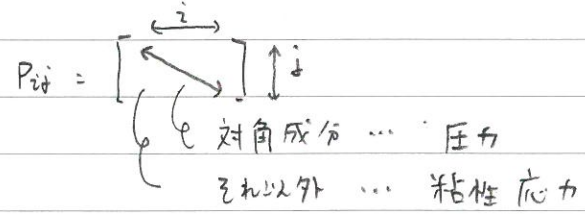 i
Pij = [ ] j
対角成分 … 圧力
それ以外 … 粘性応力